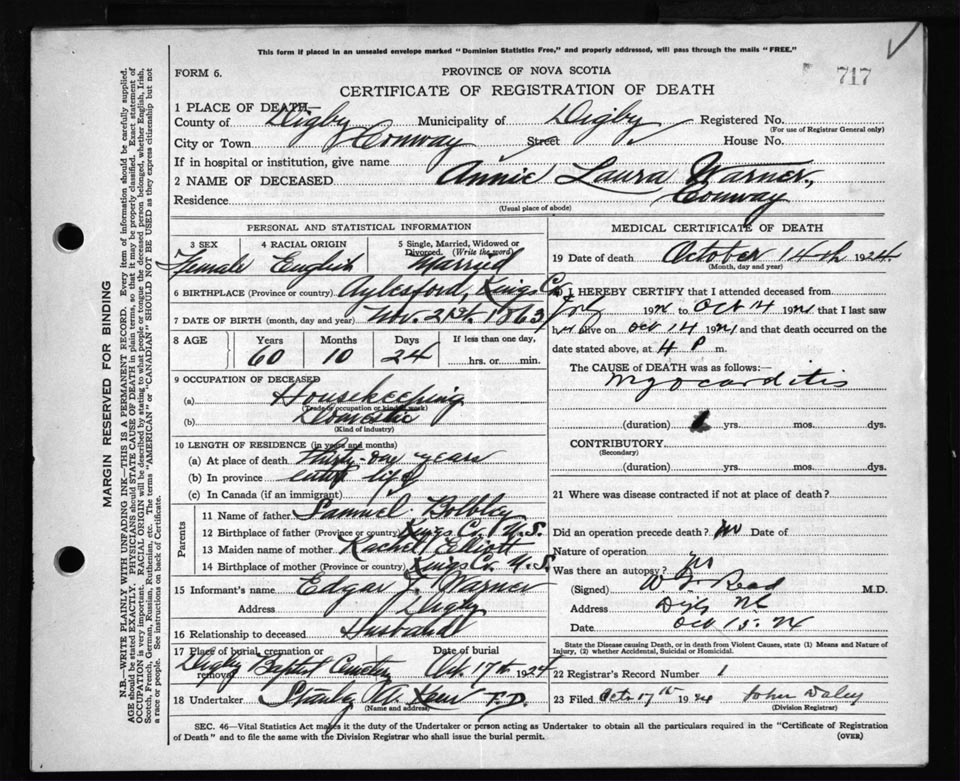 This form if placed in an unsealed envelope marked "Dominion Statistics Free," and properly addressed, will pass through the mails "FREE."
FORM 6.
PROVINCE OF NOVA SCOTIA
717
CERTIFICATE OF REGISTRATION OF DEATH
1 PLACE OF DEATH—
County of Digby Municipality of Digby Registered No.
(For use of Registrar General only)
City or Town Conway Street House No.
If in hospital or institution, give name
2 NAME OF DECEASED Annie Laura Warner,
Residence Conway
(Usual place of abode)
PERSONAL AND STATISTICAL INFORMATION
3 SEX 4 RACIAL ORIGIN 5 Single, Married, Widowed or Divorced. (Write the word)
Female English Married
6 BIRTHPLACE (Province or country) Aylesford, Kings Co.
7 DATE OF BIRTH (month, day and year) Nov. 21st. 1863
8 AGE Years Months Days If less than one day,
60 10 24 hrs. or min.
9 OCCUPATION OF DECEASED
(a) Housekeeping
(Trade or occupation or kind of work)
(b) Domestic
(Kind of industry)
10 LENGTH OF RESIDENCE (in years and months)
(a) At place of death years
(b) In province entire life
(c) In Canada (if an immigrant)
Parents
11 Name of father Samuel
12 Birthplace of father (Province or country) Kings Co. N.S.
13 Maiden name of mother Rachel Elliott
14 Birthplace of mother (Province or country) Kings Co. N.S.
15 Informant's name Edgar J. Warner
Address Digby
16 Relationship to deceased Husband
17 Place of burial, cremation or removal Date of burial
Digby Baptist Cemetery Oct. 17th 1924
18 Undertaker Stanley F.D.
(Name and address)
MEDICAL CERTIFICATE OF DEATH
19 Date of death October 14th 1924
(Month, day and year)
20 I HEREBY CERTIFY that I attended deceased from
July 1924 to Oct 14 1924 that I last saw
her alive on Oct 14 1924 and that death occurred on
date stated above, at 4 P m.
The CAUSE of DEATH was as follows:—
Myocarditis
(duration) yrs. mos. dys.
CONTRIBUTORY
(Secondary)
(duration) yrs. mos. dys.
21 Where was disease contracted if not at place of death?
Did an operation precede death? no Date of
Nature of operation
Was there an autopsy? no
(Signed) Read M.D.
Address Digby NS
Date Oct 15. 24
State the Disease causing Death, or in death from Violent Causes, state (1) Means and Nature of Injury, (2) whether Accidental, Suicidal or Homicidal.
22 Registrar's Record Number 1
23 Filed Octr 17th 1924 John Daley
(Division Registrar)
SEC. 46—Vital Statistics Act makes it the duty of the Undertaker or person acting as Undertaker to obtain all the particulars required in the "Certificate of Registration
of Death" and to file the same with the Division Registrar who shall issue the burial permit.
(OVER)
MARGIN RESERVED FOR BINDING
N.B.—WRITE PLAINLY WITH UNFADING INK—THIS IS A PERMANENT RECORD. Every item of information should be carefully supplied.
AGE should be stated EXACTLY. PHYSICIANS should STATE CAUSE OF DEATH in plain terms, so that it may be properly classified. Exact statement of
OCCUPATION is very important. RACIAL ORIGIN will be described by stating to what people or tongue the deceased person belonged, whether English, Irish,
Scotch, French, German, Russian, Ruthenian, etc. The terms "AMERICAN" or "CANADIAN" SHOULD NOT BE USED as they express citizenship but not
a race or people. See instructions on back of Certificate.